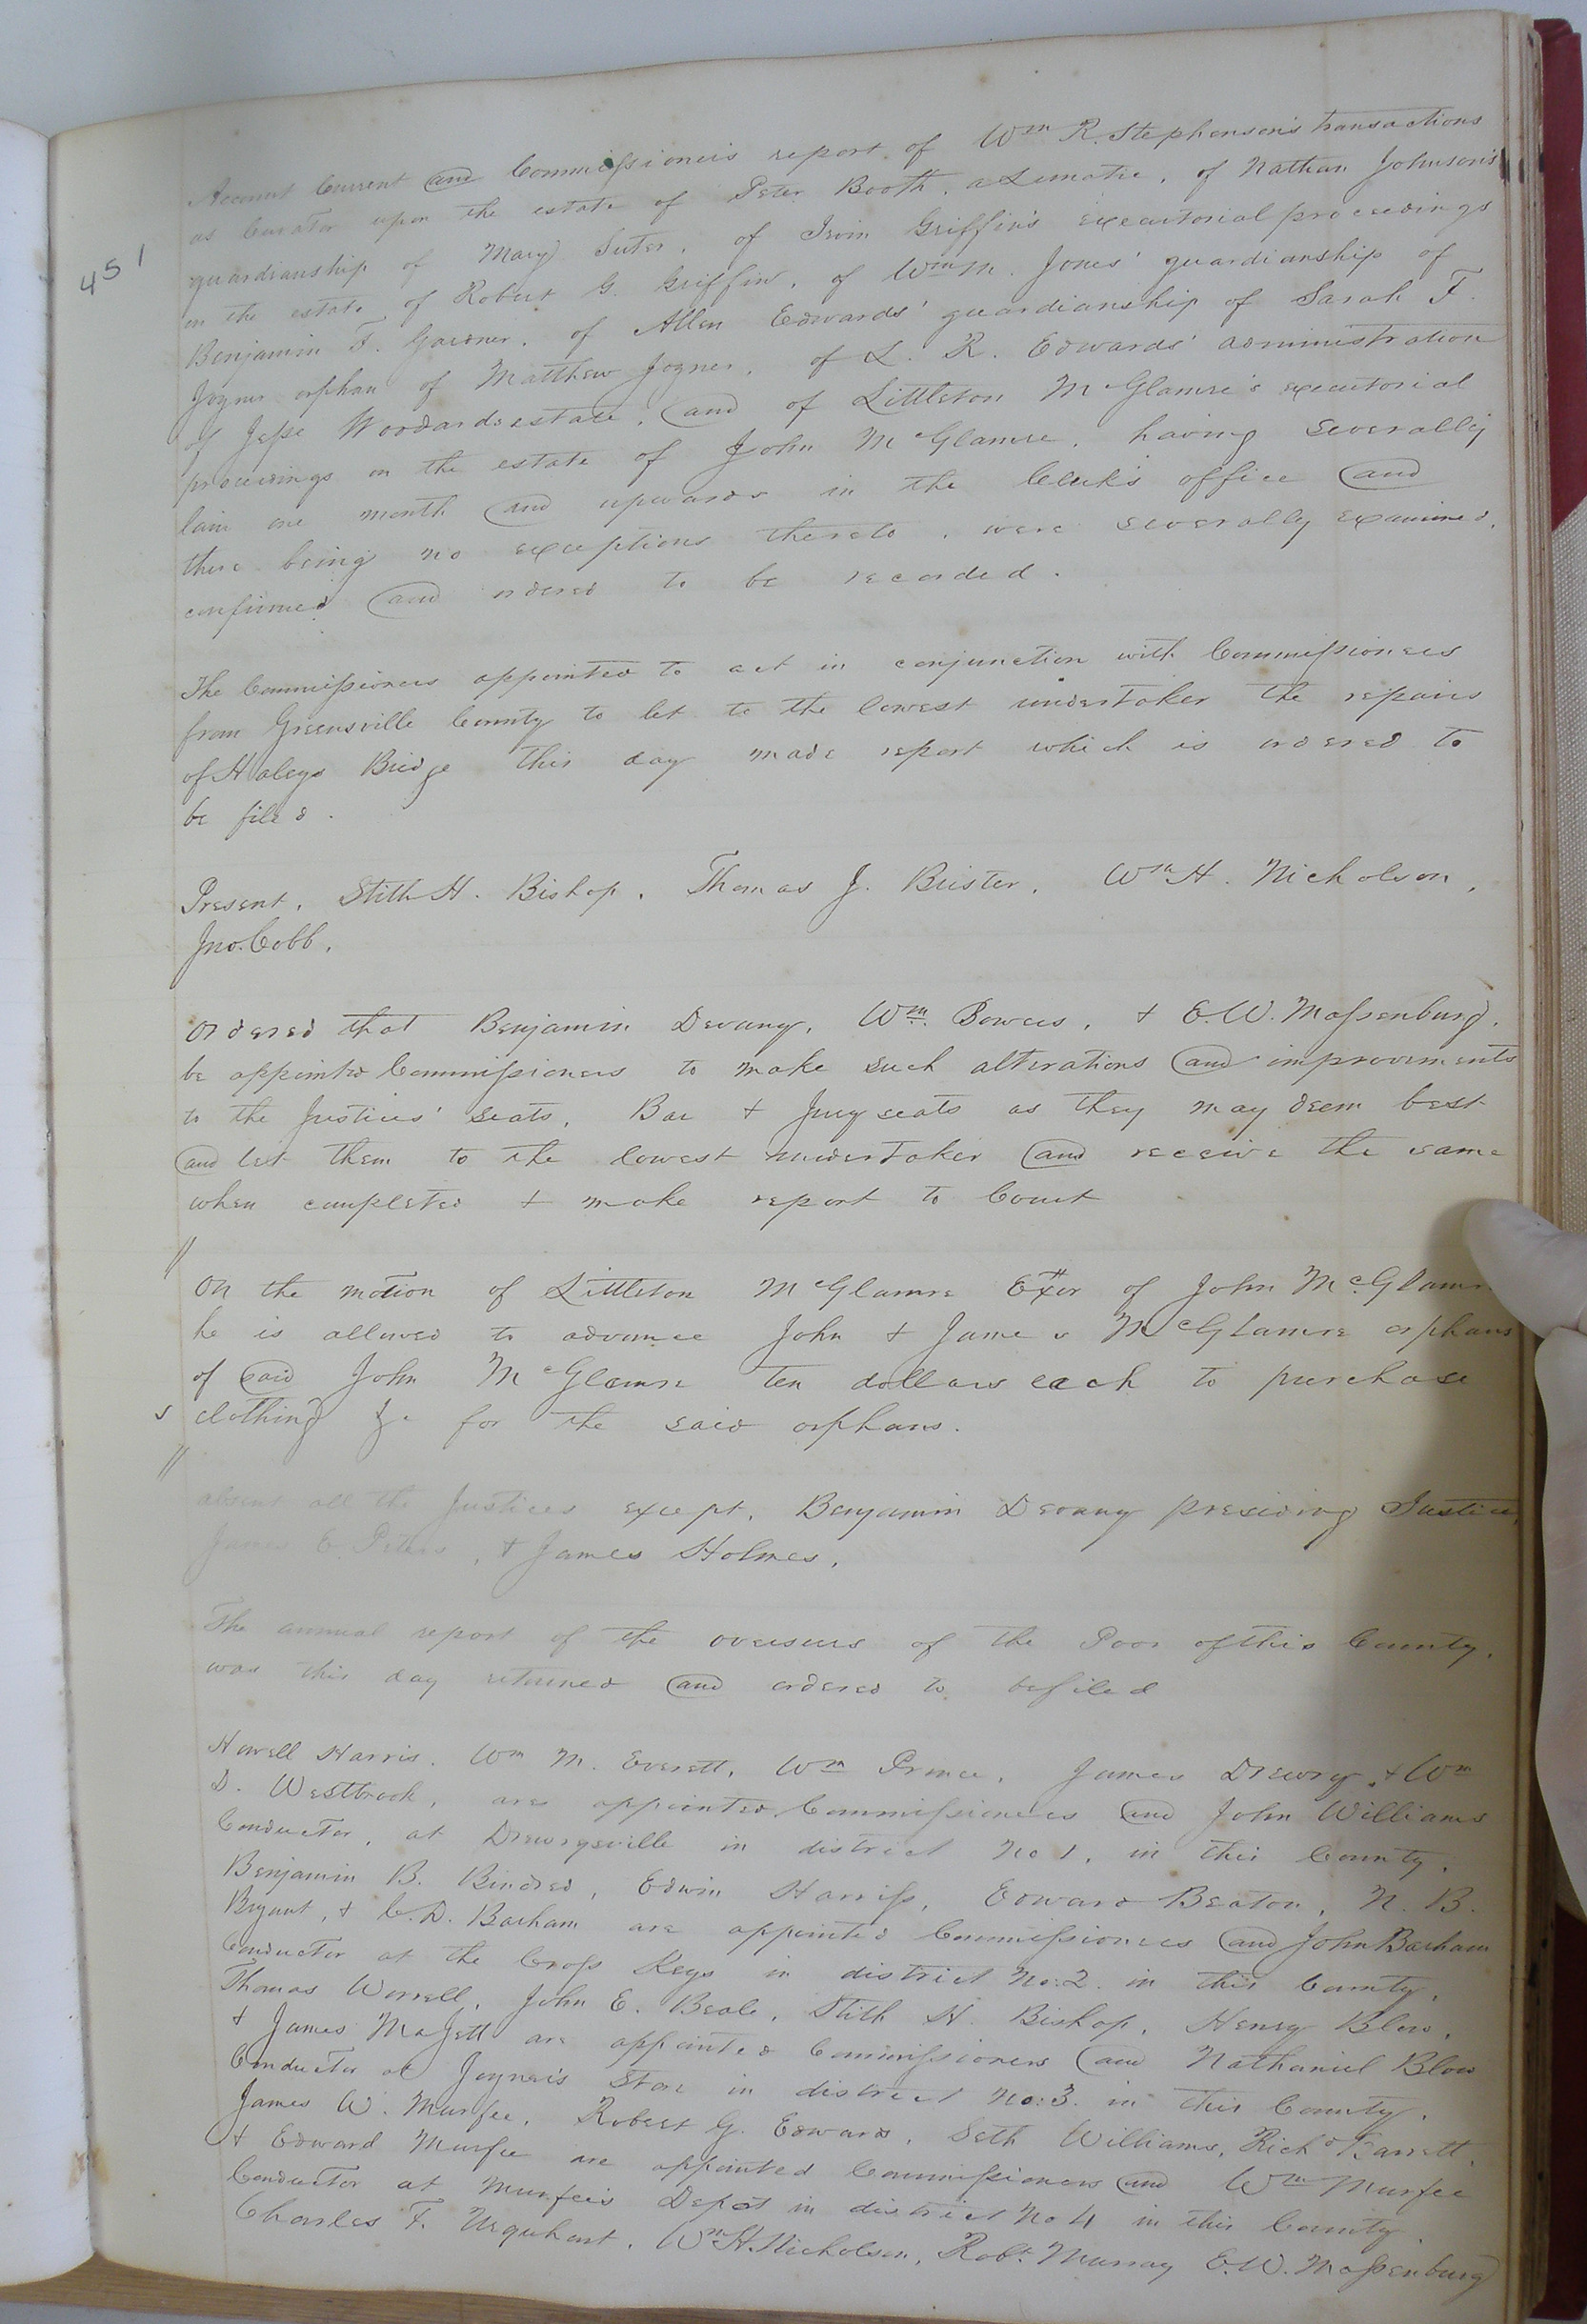 451
Account Current and Commissioner's report of Wm R. Stephenson's transactions
as Curator upon the estate of Peter Booth, a Lunatic, of Nathan Johnson's
guardianship of Mary Suter, of Irvin Griffin's executorial proceedings
on the estate of Robert G. Griffin, of Wm M. Jones' guardianship of
Benjamin F. Gardner, of Allen Edwards' guardianship of Sarah F.
Joyner orphan of Matthew Joyner, of L. R. Edwards' administration
of Jesse Woodards estate, and of Littleton McGlamre's executorial
proceedings on the estate of John McGlamre, having severally
lain one month and upwards in the Clerk's office and
there being no exceptions thereto, were severally examined,
confirmed and ordered to be recorded.
The Commissioners appointed to act in conjunction with Commissioners
from Greensville County to let to the lowest undertaker the repairs
of Haleys Bridge this day made report which is ordered to
be filed.
Present, Stith H. Bishop, Thomas J. Brister, Wm H. Nicholson,
Jno. Cobb.
Ordered that Benjamin Devany, Wm. Bowers, & E. W. Massenburg,
be appointed Commissioners to make such alterations and improvements
to the Justices' seats, Bar & Jury seats as they may deem best
and let them to the lowest undertaker and receive the same
when completed & make report to Court
On the motion of Littleton McGlamre Exor of John McGlamre
he is allowed to advance John & James McGlamre orphans
of said John McGlamre ten dollars each to purchase
clothing &c for the said orphans.
absent all the Justices except, Benjamin Devany presiding Justice,
James E. Peters, & James Holmes.
The annual report of the overseers of the Poor of this County,
was this day returned and ordered to be filed
Howell Harris, Wm M. Everett, Wm Prince, James Drewry, & Wm
D. Westbrook, are appointed Commissioners and John Williams
Conductor, at Drewrysville in district No 1, in this County.
Benjamin B. Kindred, Edwin Harriss, Edward Beaton, N. B.
Bryant, & C. D. Barham are appointed Commissioners and John Barham
Conductor at the Cross Keys in district No: 2. in this County.
Thomas Worrell, John E. Beale, Stith H. Bishop, Henry Blow,
& James Majett are appointed Commissioners and Nathaniel Blow
Conductor at Joyner's Store in district No: 3. in this County.
James W. Murfee, Robert G. Edwards, Seth Williams, Richd Barrett,
& Edward Murfee are appointed Commissioners and Wm Murfee
Conductor at Murfee's Depot in district No 4 in this County.
Charles F. Urquhart, Wm H. Nicholson, Robt. Murray E. W. Massenburg